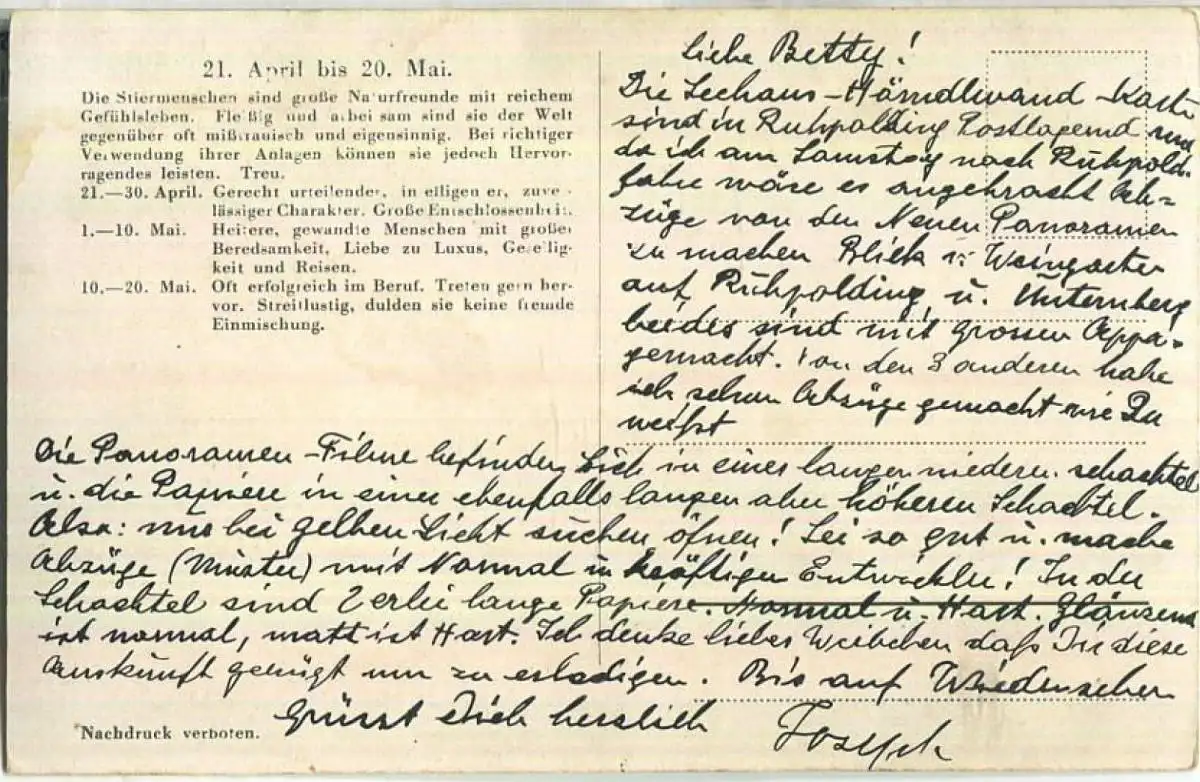 21. April bis 20. Mai.
Die Stiermenschen sind große Naturfreunde mit reichem
Gefühlsleben. Fleißig und arbeitsam sind sie der Welt
gegenüber oft mißtrauisch und eigensinnig. Bei richtiger
Verwendung ihrer Anlagen können sie jedoch Hervor-
ragendes leisten. Treu.
21.—30. April. Gerecht urteilender, intelligenter, zuver-
lässiger Charakter. Große Entschlossenheit.
1.—10. Mai. Heitere, gewandte Menschen mit großer
Beredsamkeit, Liebe zu Luxus, Gesellig-
keit und Reisen.
10.—20. Mai. Oft erfolgreich im Beruf. Treten gern her-
vor. Streitlustig, dulden sie keine fremde
Einmischung.
Liebe Betty!
Die Seehaus-Hörndlwand-Karten
sind in Ruhpolding Postlagernd und
da ich am Samstag nach Ruhpold.
fahre wäre es angebracht Ab=
züge von den Neuen Panoramen
zu machen Blick v. Weingarten
auf Ruhpolding u. Unternberg
beides sind mit grossen Appa.
gemacht. Von den 3 anderen habe
ich schon Abzüge gemacht wie Du
weißt
Die Panoramen-Filme befinden sich in einer langen niedern. schachtel
u. die Papiere in einer ebenfalls langen aber höheren Schachtel.
Also: nur bei gelben Licht suchen öfnen! Sei so gut u. mache
Abzüge (Muster) mit Normal u kräftigen Entwickler! In der
Schachtel sind 2erlei lange Papiere. Normal u. Hart. Glänzend
ist normal, matt ist Hart. Ich denke liebes Weibchen daß Dir diese
Auskunft genügt um zu erledigen. Bis auf Wiedersehen
Grüsst Dich herzlich
Joseph
Nachdruck verboten.